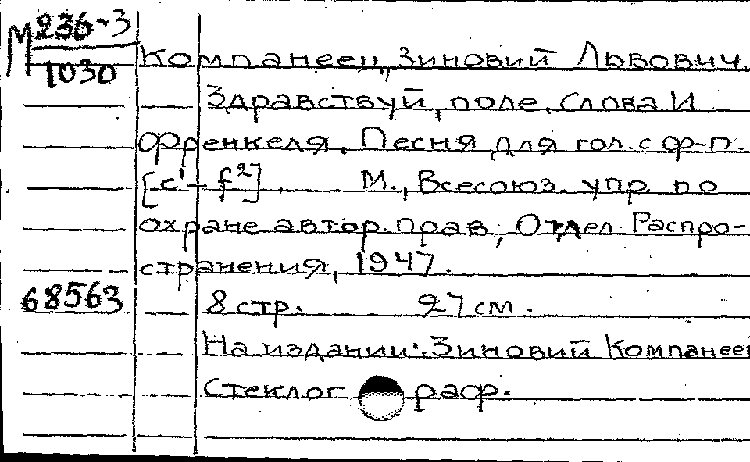 М 236-3
1030
Компанеец, Зиновий Львович.
Здравствуй, поле. Слова И.
Френкеля. Песня для гол. с ф-п.
[c¹-f²]. М., Всесоюз. упр. по
охране автор. прав, Отдел Распро-
странения, 1947.
68563
8 стр. 27 см.
На издании: Зиновий Компанеец
Стеклограф.